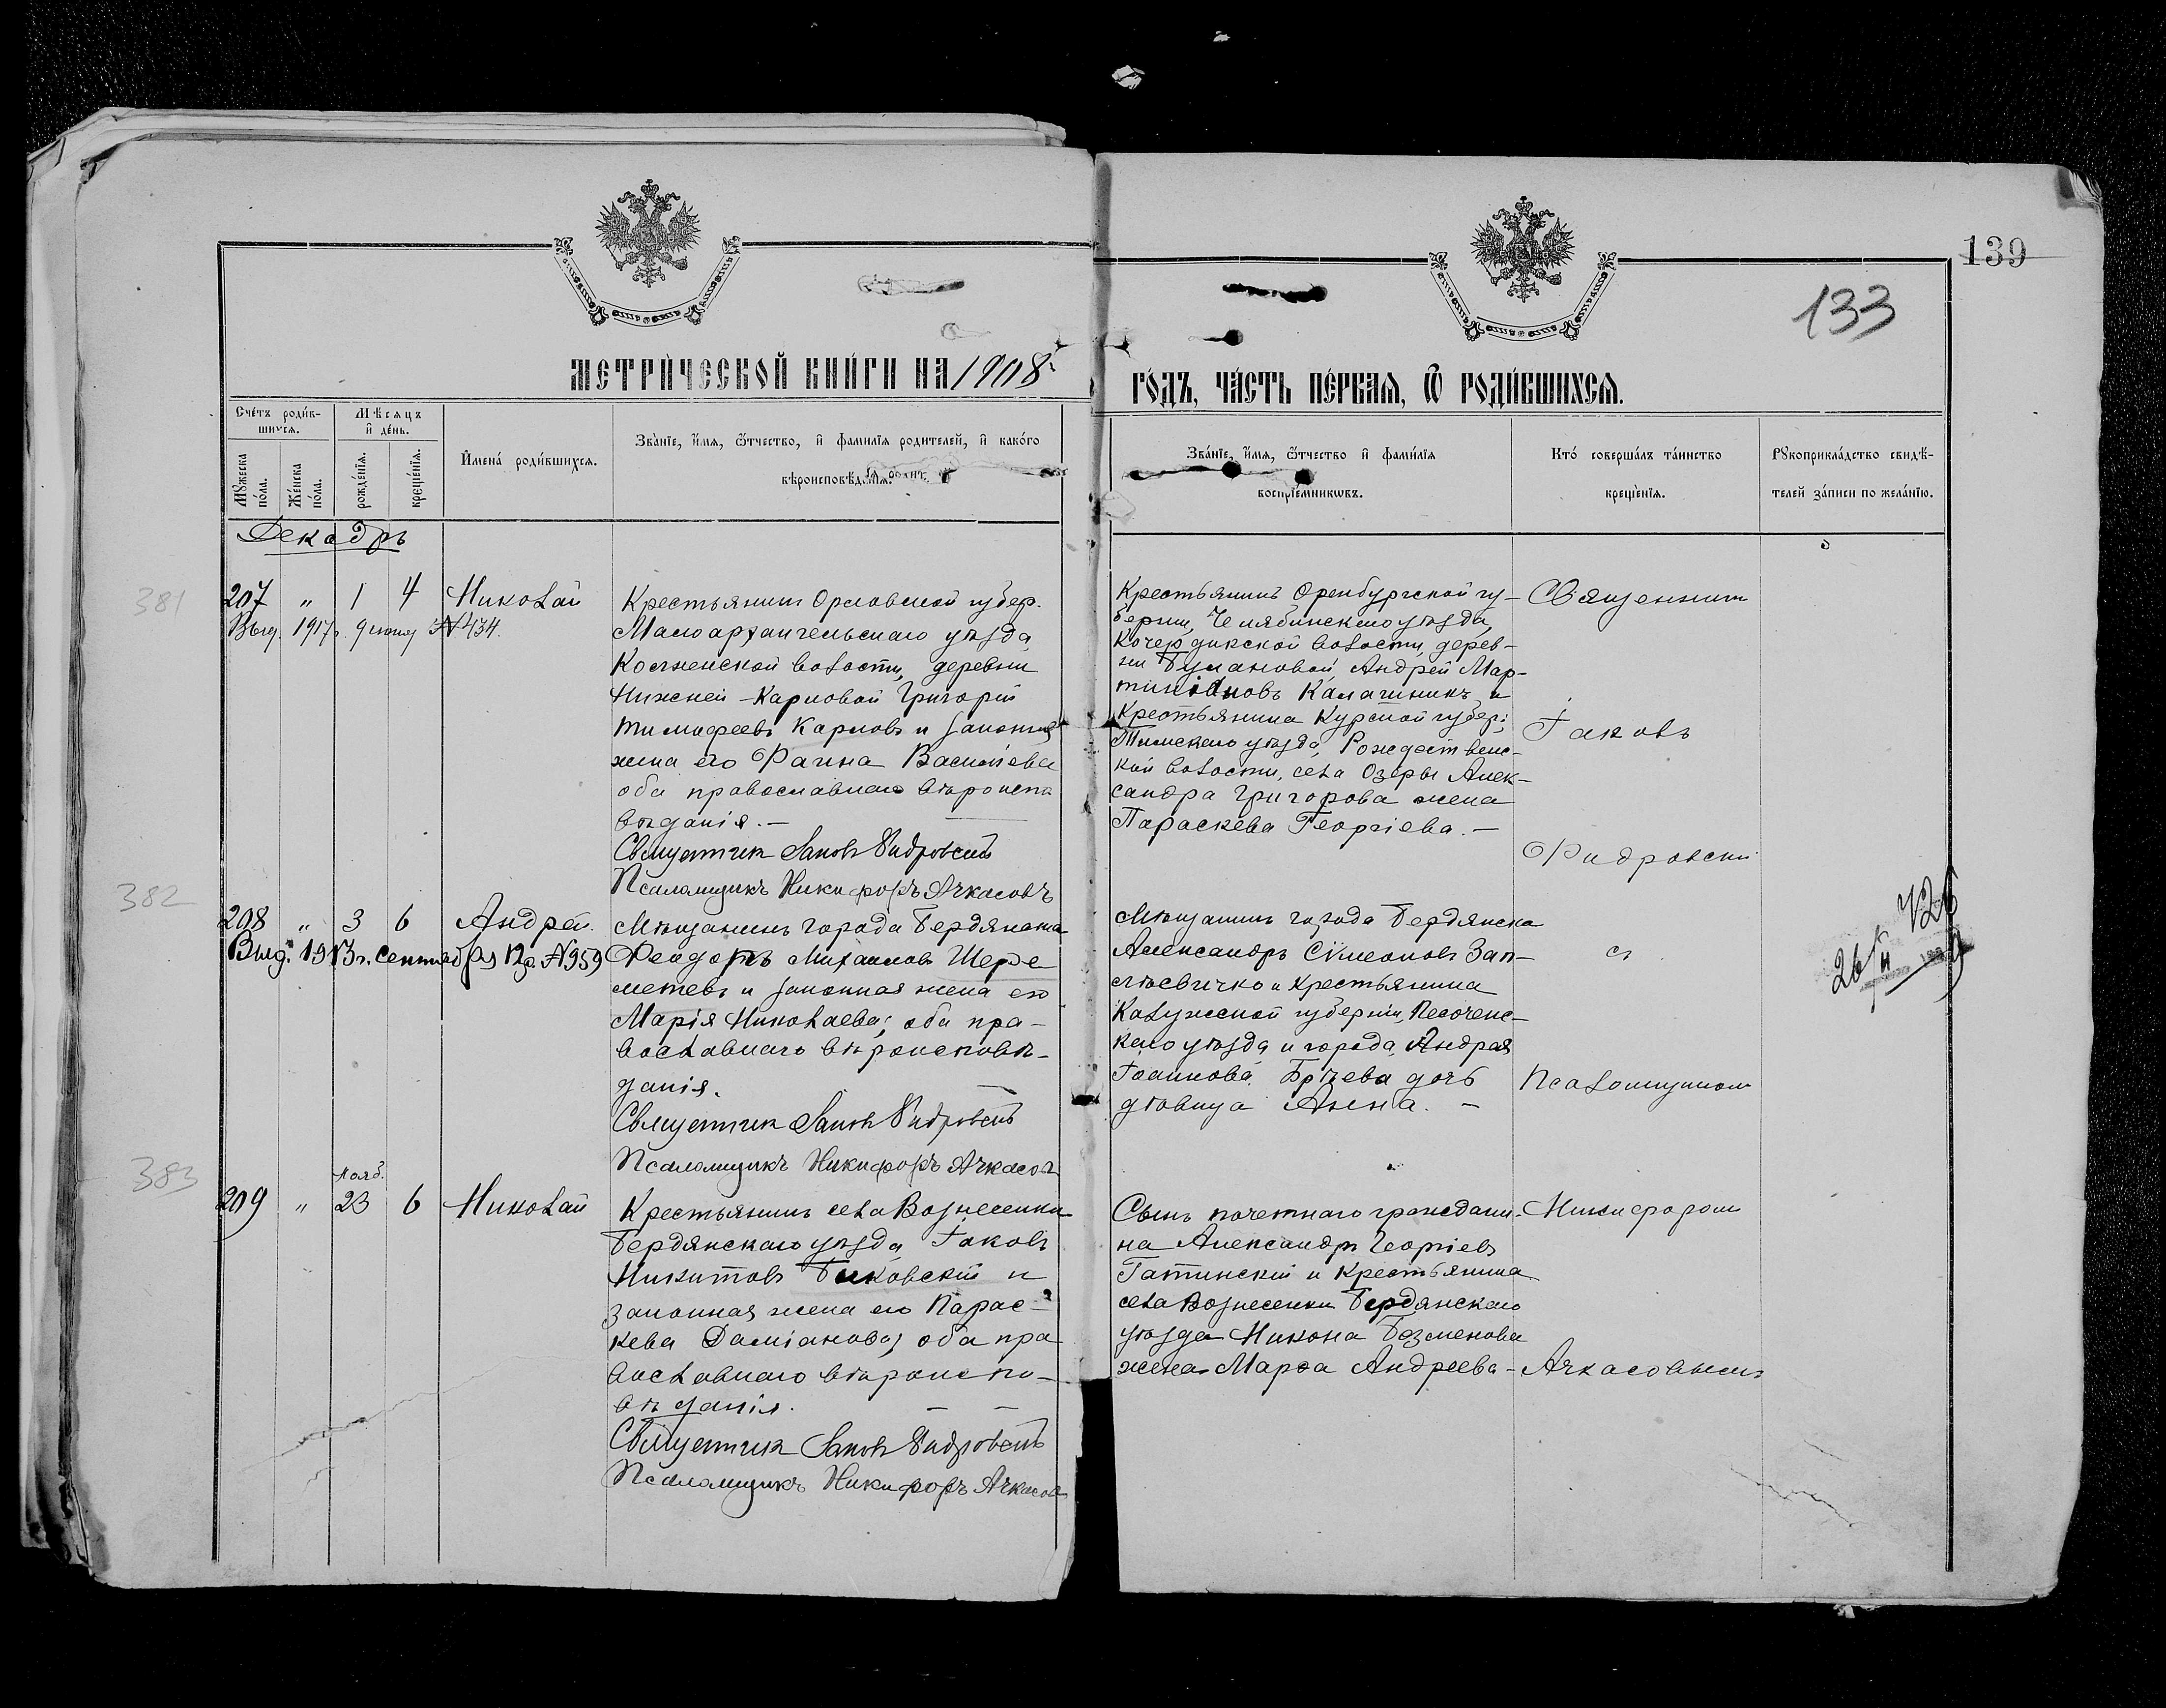 139
133
МЕТРИ́ЧЕСКОЙ КНИ́ГИ НА 1908 г.
ГО́ДЪ, ЧА́СТЬ ПЕ́РВАЯ, Ѡ РОДИ́ВШИХСЯ.
Сче́тъ роди́в-
шихся.
Мѣсяцъ
и҆ де́нь.
Мꙋ́жеска по́ла.
Же́нска по́ла.
рожде́нїя.
креще́нїя.
И҆мена́ роди́вшихся.
Зва́нїе, и҆́мя, ѻ҆́тчество, и҆ фами́лїя роди́телей, и҆ како́го
вѣроисповѣ́данїя.
Зва́нїе, и҆́мя, ѻ҆́тчество и҆ фами́лїя
воспрїе́мникѡвъ.
Кто́ соверша́лъ та́инство
креще́нїя.
Рꙋкоприкла́дство свидѣ́-
телей за́писи по жела́нїю.
Декабрь
381
207 " 1 4 Николай
Выд. 1917 г. 9 июня № 434.
Крестьянинъ Орловской губер.
Малоархангельскаго уѣзда,
волости, деревни
Нижней-Карловой Григорій
Тимофеевъ Карловъ и законная
жена его Фаина Васильева
оба православнаго вѣроиспо
вѣданія. —
Священникъ Іаковъ Фидровскій
Псаломщикъ Никифоръ Ачкасовъ
Крестьянинъ Оренбургской гу-
берніи, Челябинскаго уѣзда,
Кочердыкской волости, дерев-
ни Андрей Мар-
тиніановъ Калашникъ и
Крестьянина Курской губер.
Тимскаго уѣзда, Рождествен-
кой волости, села Озеры Алек-
сандра Григорова жена
Параскева Георгіева. —
Священник
Іаковъ
Фидровскій
382
208 " 3 6 Андрей.
Выд. 1913 г. сентября 12 д. № 959
Мѣщанинъ города Бердянска
Феодотъ Михаиловъ Шере-
метевъ и законная жена его
Марія Николаева; оба пра-
вославнаго вѣроисповѣ-
данія.
Священникъ Іаковъ Фидровскій
Псаломщикъ Никифоръ Ачкасов
Мѣщанинъ города Бердянска
Александръ Сѵмеоновъ Зап-
лѣсвичко и крестьянина
Калужской губерніи,
уѣзда и города, Андрея
Іоаннова дочь
дѣвица Анна. —
съ
Псаломщикомъ
383
Нояб.
209 " 23 6 Николай
Крестьянинъ села Вознесенки
Бердянскаго уѣзда Іаковъ
Никитовъ Быковскій и
законная жена его Парас-
кева Даміанова, оба пра
вославнаго вѣроиспо-
вѣданія.
Священникъ Іаковъ Фидровскій
Псаломщикъ Никифоръ Ачкасов
Сынъ почетнаго граждани-
на Александръ Георгіевъ
Гатинскій и крестьянина
села Вознесенки Бердянскаго
уѣзда Никона Безменова
жена Марѳа Андреева —
Никифоромъ
Ачкасовымъ